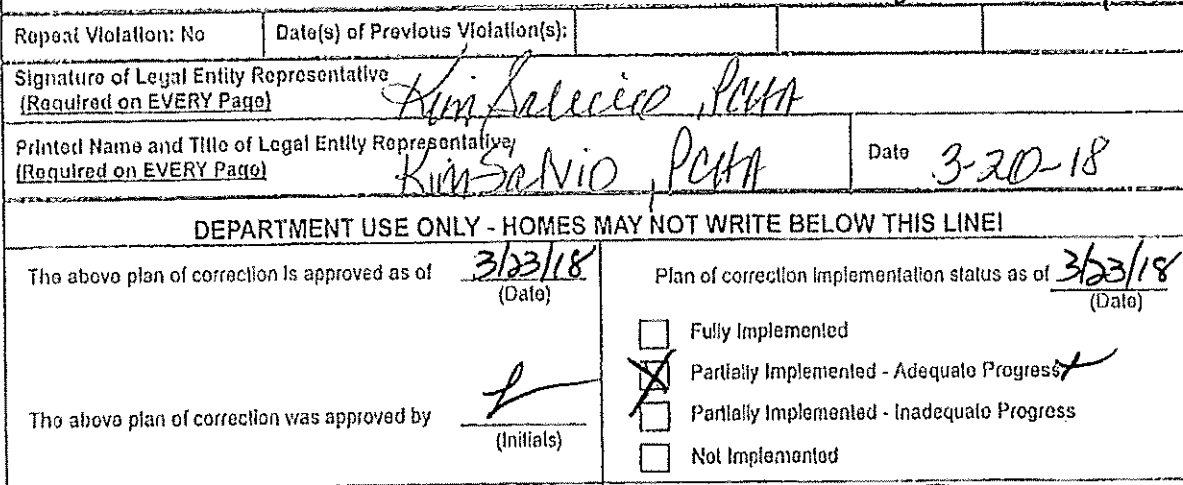 Repeat Violation: No
Date(s) of Previous Violation(s):
Signature of Legal Entity Representative
(Required on EVERY Page)
Kim Salvio, PCHA
Printed Name and Title of Legal Entity Representative
(Required on EVERY Page)
Kim Salvio, PCHA
Date 3-20-18
DEPARTMENT USE ONLY - HOMES MAY NOT WRITE BELOW THIS LINE!
The above plan of correction is approved as of 3/23/18
(Date)
The above plan of correction was approved by
(Initials)
Plan of correction implementation status as of 3/23/18
(Date)
Fully Implemented
Partially Implemented - Adequate Progress
Partially Implemented - Inadequate Progress
Not Implemented